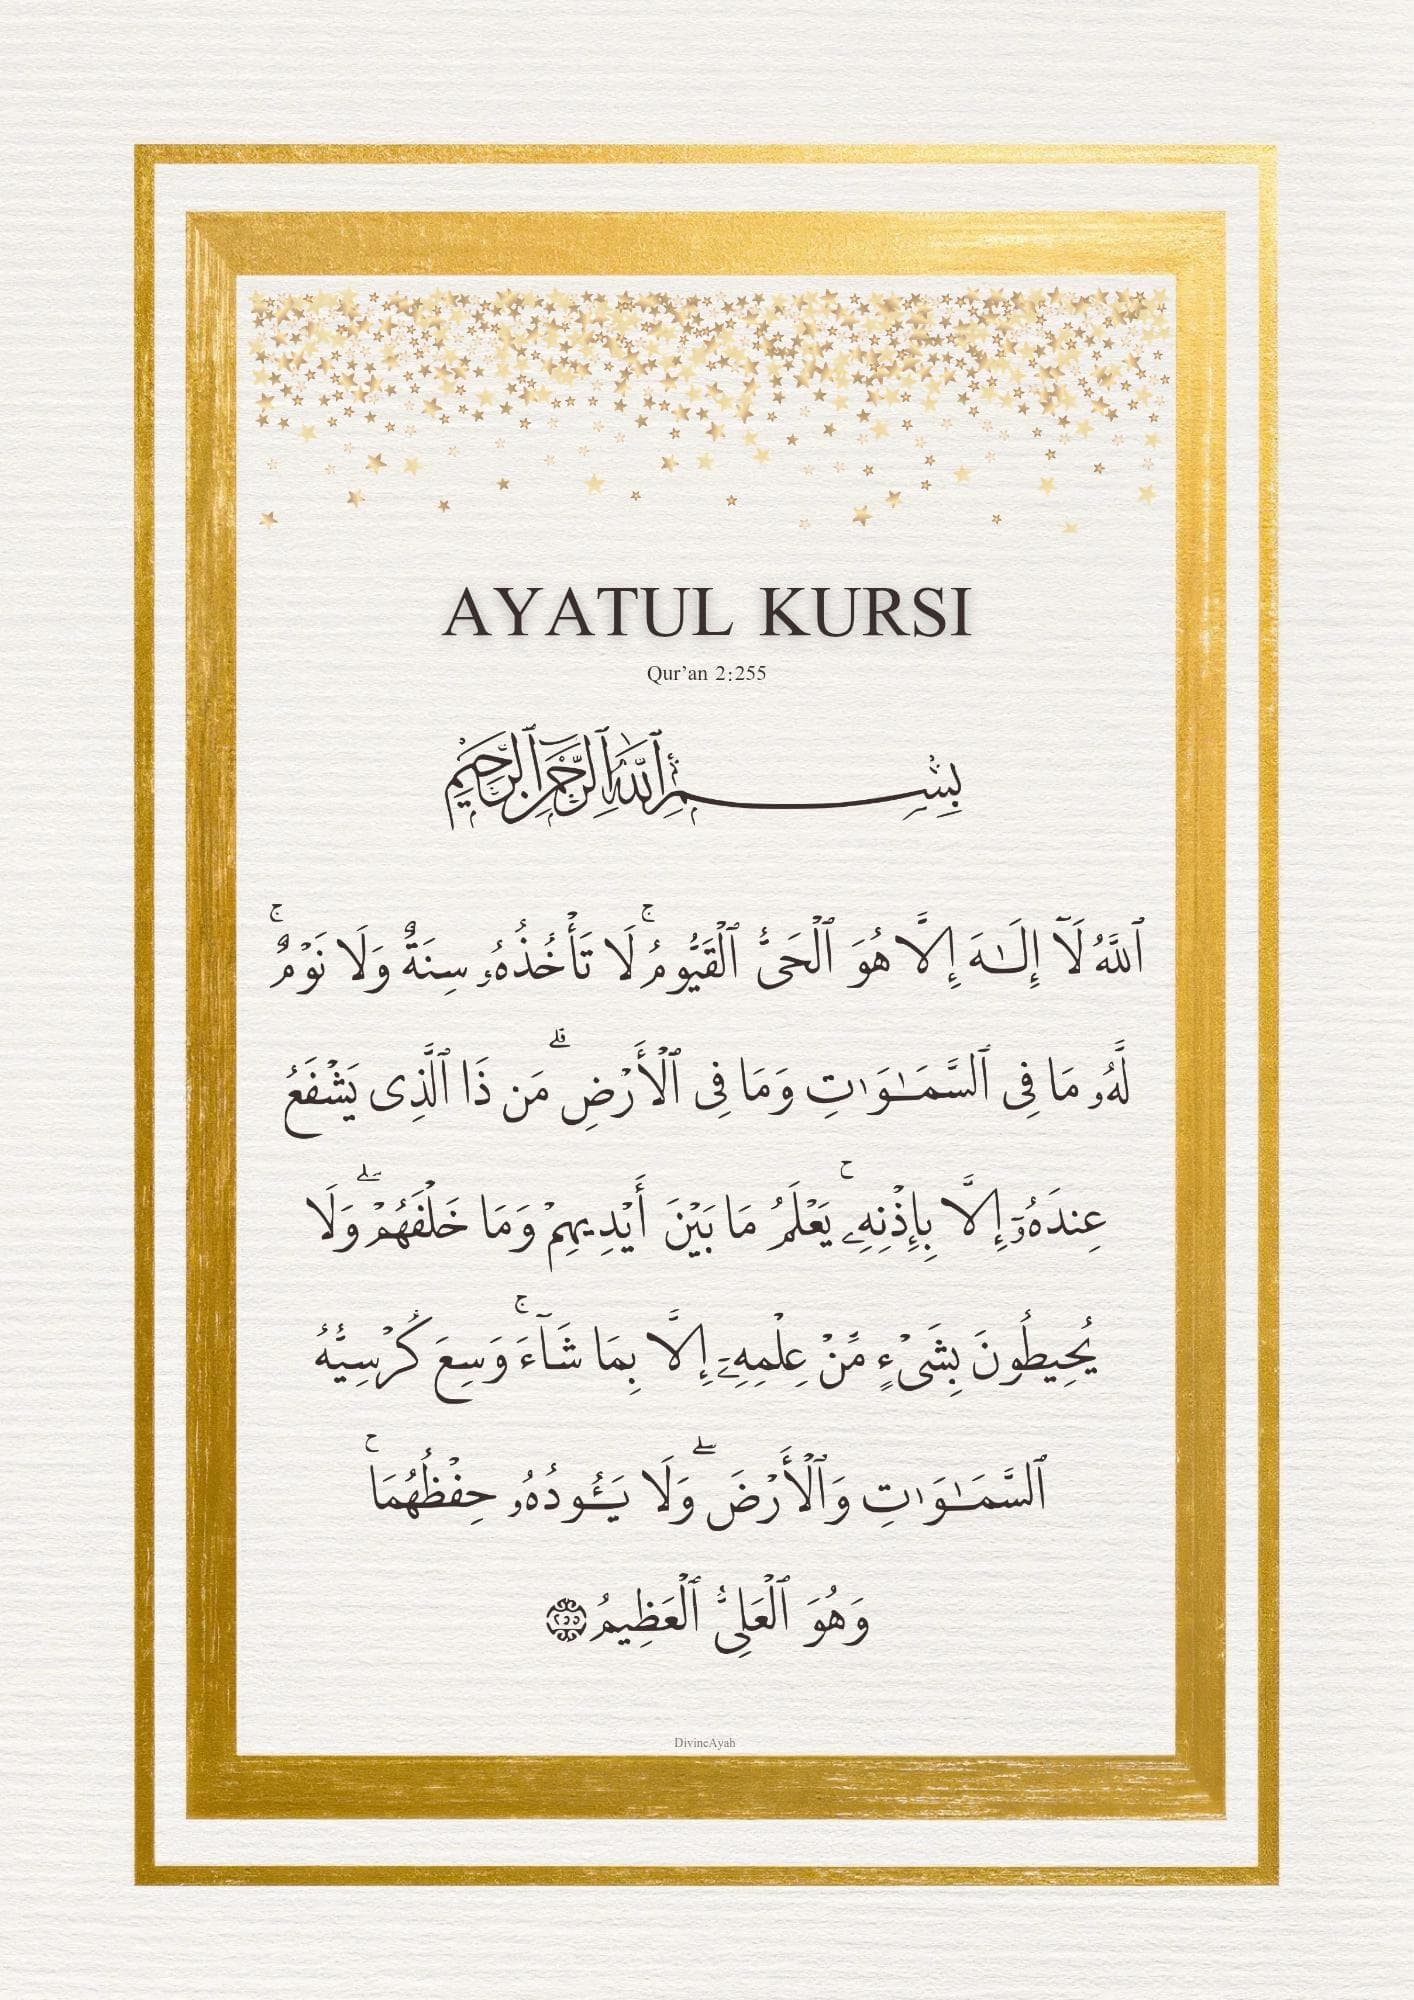 AYATUL KURSI
Qur’an 2:255
بِسْمِ ٱللَّهِ ٱلرَّحْمَٰنِ ٱلرَّحِيمِ
ٱللَّهُ لَآ إِلَـٰهَ إِلَّا هُوَ ٱلْحَىُّ ٱلْقَيُّومُ ۚ لَا تَأْخُذُهُۥ سِنَةٌ وَلَا نَوْمٌ ۚ
لَّهُۥ مَا فِى ٱلسَّمَـٰوَٰتِ وَمَا فِى ٱلْأَرْضِ ۗ مَن ذَا ٱلَّذِى يَشْفَعُ
عِندَهُۥٓ إِلَّا بِإِذْنِهِۦ ۚ يَعْلَمُ مَا بَيْنَ أَيْدِيهِمْ وَمَا خَلْفَهُمْ ۖ وَلَا
يُحِيطُونَ بِشَىْءٍ مِّنْ عِلْمِهِۦٓ إِلَّا بِمَا شَآءَ ۚ وَسِعَ كُرْسِيُّهُ
ٱلسَّمَـٰوَٰتِ وَٱلْأَرْضَ ۖ وَلَا يَـُٔودُهُۥ حِفْظُهُمَا ۚ
وَهُوَ ٱلْعَلِىُّ ٱلْعَظِيمُ ٢٥٥
DivineAyah